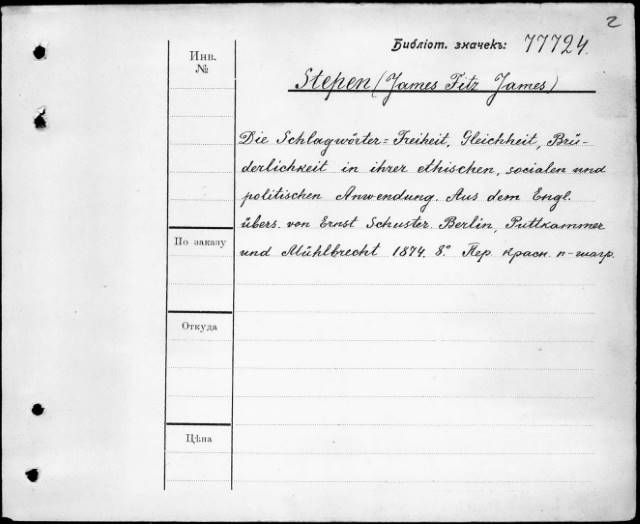 2
Библіот. значекъ: 77724.
Инв.
№
Stepen (James Fitz James)
Die Schlagwörter = Freiheit, Gleichheit, Brü-
derlichkeit in ihrer ethischen, socialen und
politischen Anwendung. Aus dem Engl.
übers. von Ernst Schuster. Berlin, Puttkammer
По заказу
und Mühlbrecht 1874. 8.° Пер. красн. п-шагр.
Откуда
Цѣна